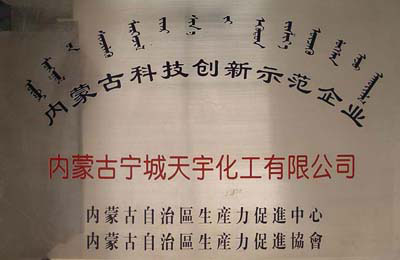 内蒙古科技创新示范企业
内蒙古宁城天宇化工有限公司
内蒙古自治區生産力促進中心
内蒙古自治區生産力促進協會